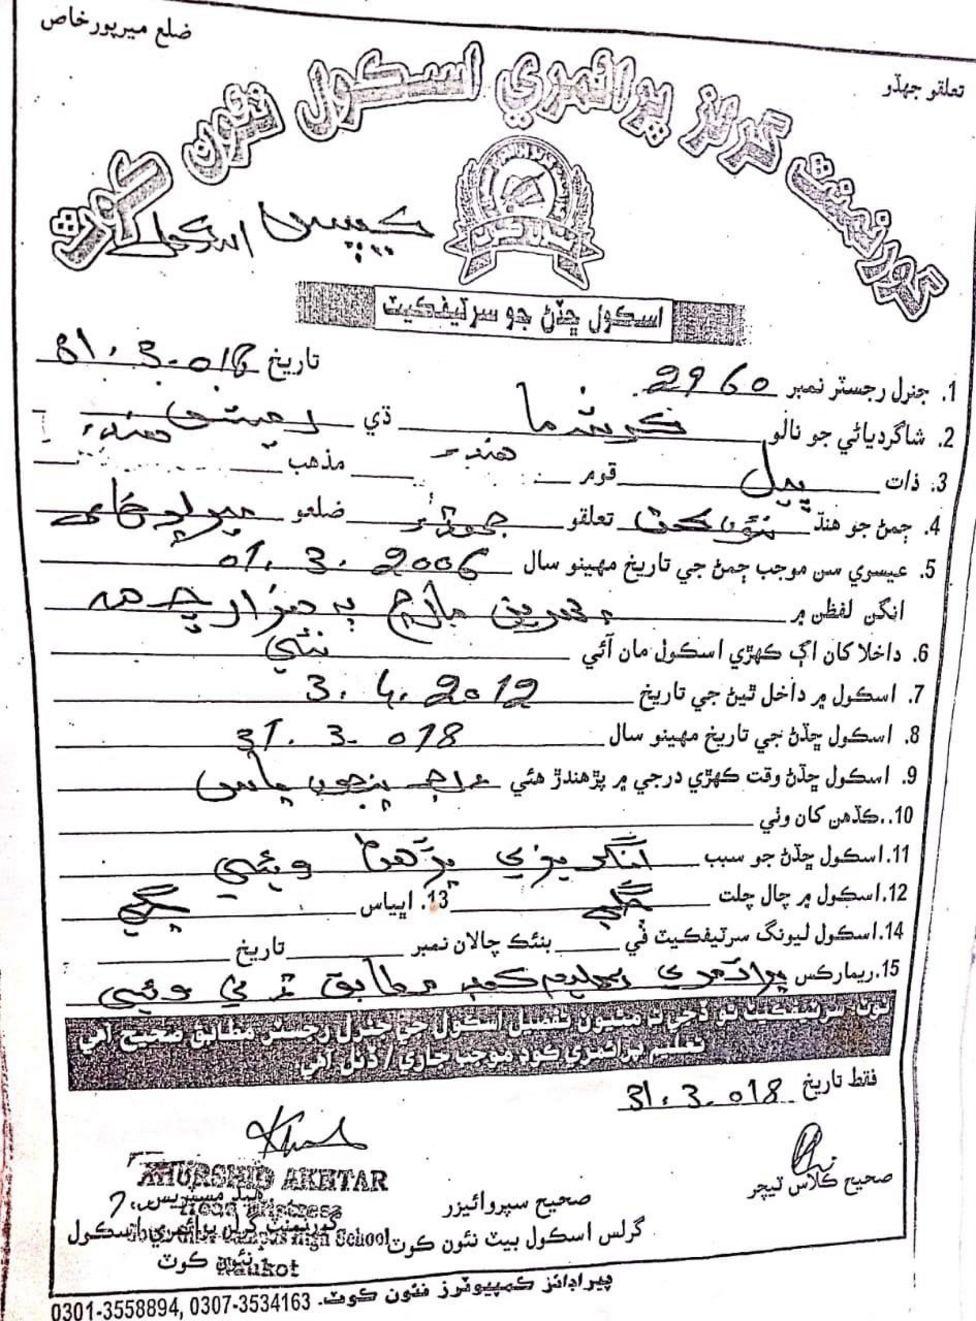 ضلع ميرپورخاص
تعلقو جهڏو
گورنمينٽ گرلز پرائمري اسڪول نئون ڪوٽ
ڪيمپس اسڪول
اسڪول ڇڏڻ جو سرٽيفڪيٽ
1. جنرل رجسٽر نمبر 2960 تاريخ 31.3.018
2. شاگردياڻي جو نالو ڪرشما ڌي
3. ذات ڀيل قوم هندو مذهب هندو
4. ڄمڻ جو هنڌ نئون ڪوٽ تعلقو جهڏو ضلعو ميرپورخاص
5. عيسري سن موجب ڄمڻ جي تاريخ مهينو سال 01.3.2006
انگن لفظن ۾ پهرين مارچ ٻه هزار ڇهه
6. داخلا کان اڳ ڪهڙي اسڪول مان آئي نئي
7. اسڪول ۾ داخل ٿيڻ جي تاريخ 3.4.2012
8. اسڪول ڇڏڻ جي تاريخ مهينو سال 31.3.018
9. اسڪول ڇڏڻ وقت ڪهڙي درجي ۾ پڙهندڙ هئي پنجون پاس
10. ڪڏهن کان وٺي
11. اسڪول ڇڏڻ جو سبب انگريزي پڙهڻ ويئي
12. اسڪول ۾ چال چلت چڱي 13. اڀياس چڱي
14. اسڪول ليونگ سرٽيفڪيٽ في بئنڪ چالان نمبر تاريخ
15. ريمارڪس پرائمري تعليم مطابق ويئي
نوٽ: سرٽيفڪيٽ ٿو ڏجي ته مٿيون تفصيل اسڪول جي جنرل رجسٽر مطابق صحيح آهي
تعليم پرائمري ڪوڊ موجب جاري / ڏنل آهي.
فقط تاريخ 31.3.018
صحيح ڪلاس ٽيچر
صحيح سپروائيزر
گرلس اسڪول بيٽ نئون ڪوٽ
KHURSHID AKHTAR
هيڊ مسٽريس
Head Mistress
گورنمينٽ گرلز پرائمري اسڪول
Campus High School
نئون ڪوٽ
Naukot
پيراڊائز ڪمپيوٽرز نئون ڪوٽ۔ 0301-3558894, 0307-3534163